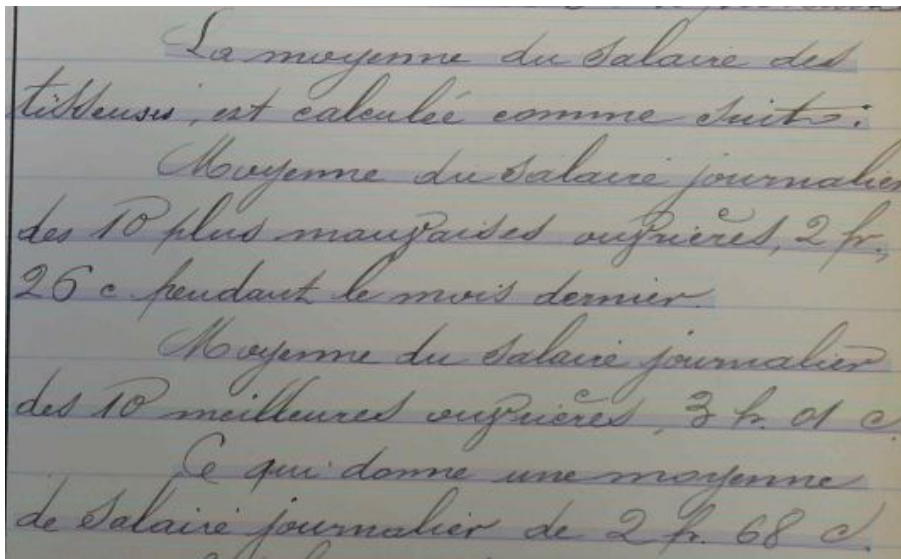 La moyenne du salaire des
tisseuses, est calculée comme suit :
Moyenne du salaire journalier
des 10 plus mauvaises ouvrières, 2 fr.,
26 c pendant le mois dernier.
Moyenne du salaire journalier
des 10 meilleures ouvrières, 3 fr. 01 c.
Ce qui donne une moyenne
de salaire journalier de 2 fr. 68 c.